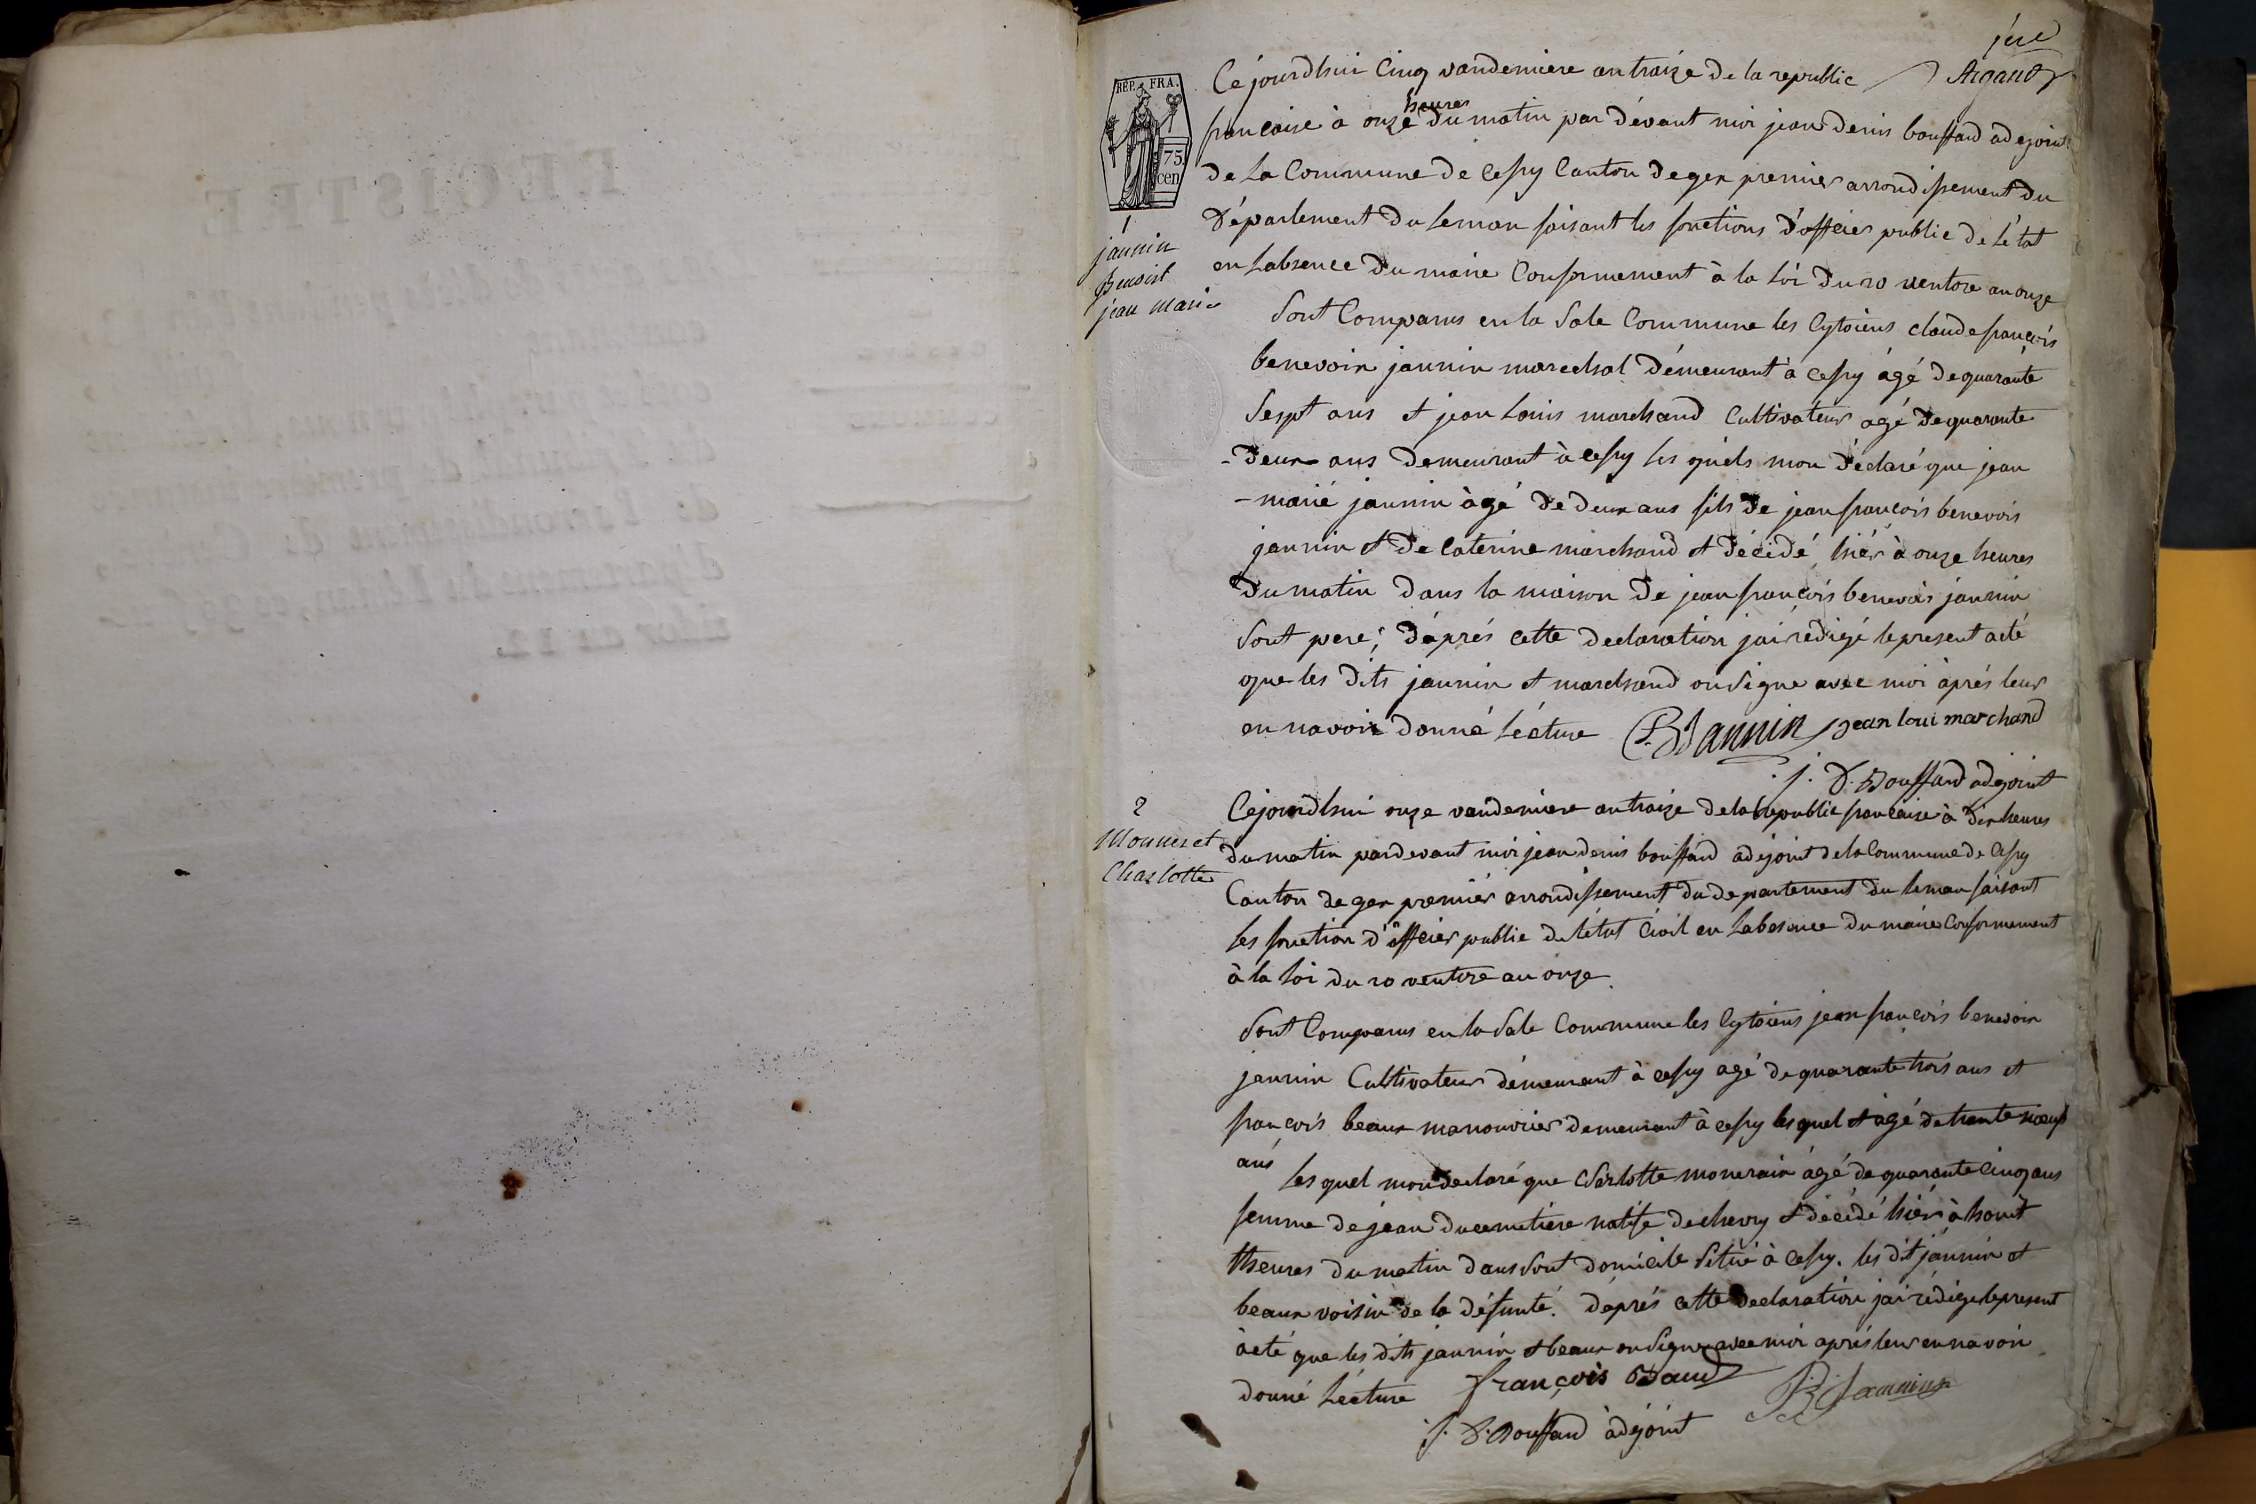 jere
Argaud
REP. FRA.
75
cen
1
jannin
Benoist
jean marie
Cejourdhui Cinq vandemiere an traize de la republic
francaise à onze heures du matin par dévant moi jean denis bouffard adejoint
de la Commune de Cessy Canton de gex premier arrondissement du
Département du leman faisant les fonctions d'officier public de l'état
en labsence du maire Conformement à la loi du 20 ventose an onze
Sont Comparus en la Sale Commune les Cytoiens claude francois
benevoix jannin marechal démeurant à cessy âgé de quarante
Sept ans et jean Louis marchand Cultivateur agé de quarante
-deux ans demeurant à cessy les quels mon déclaré que jean
-marié jannin àgé de deux ans fils de jean francois benevois
jannin et de caterine marchand et décidé hiér à onze heures
du matin dans la maison de jean francois benevois jannin
Sont pere; d'aprés cette declaration jai rédigé le present acté
que les dits jannin et marchand on signe avec moi àprés leur
en navoir donné lécture B Jannin jean loui marchand
j. D. Bouffard adejoint
2
Monneret
Charlotte
Cejourdhui onze vandemiere an traize de la republic francaise à dix heures
du matin pardevant moi jean denis bouffard adejoint de la Commune de Cessy
Canton de gex premiér arrondissement du departement du leman faisant
les fonction d'officier public de létat Civil en Labesence du maire Conformement
à la loi du 20 ventose an onze
Sont Comparus en la Sale Commune les Cytoiens jean francois benevoix
jannin Cultivateur démeurant à cessy agé de quarante trois ans et
francois beaux manouvrier demeurant à cessy les quel et agé de trante noeuf
ans les quel mon declaré que Charlotte monerair âgé de quarante Cinq ans
femme de jean ducemetiere natife de chevry et décédé hiér à houit
theures du matin dans sont domicile Situé à cessy. les dit jannin et
beaux voisin de la défunté. d'aprés cette declaration jai rédige le present
àcté que les dits jannin et beaux on signe avec moi aprés leur en navoir
donné lécture françois Baud B Jannin
j. D. Bouffard àdejoint